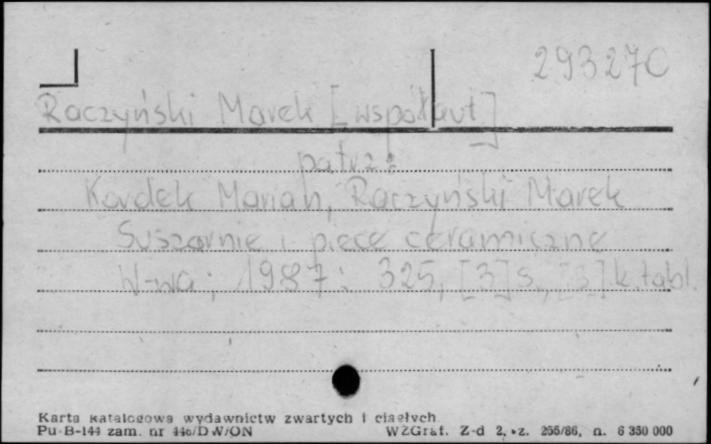 293270
Raczyński Marek [współaut]
patrz:
Kordek Marian, Raczyński Marek
Suszarnie i piece ceramiczne
W-wa; 1987: 325, [3] s., [3] k. tabl.
Karta katalogowa wydawnictw zwartych i ciągłych
Pu-B-144 zam. nr /DW/ON WZGraf. Z-d 2, z. 256/86, n. 6 350 000